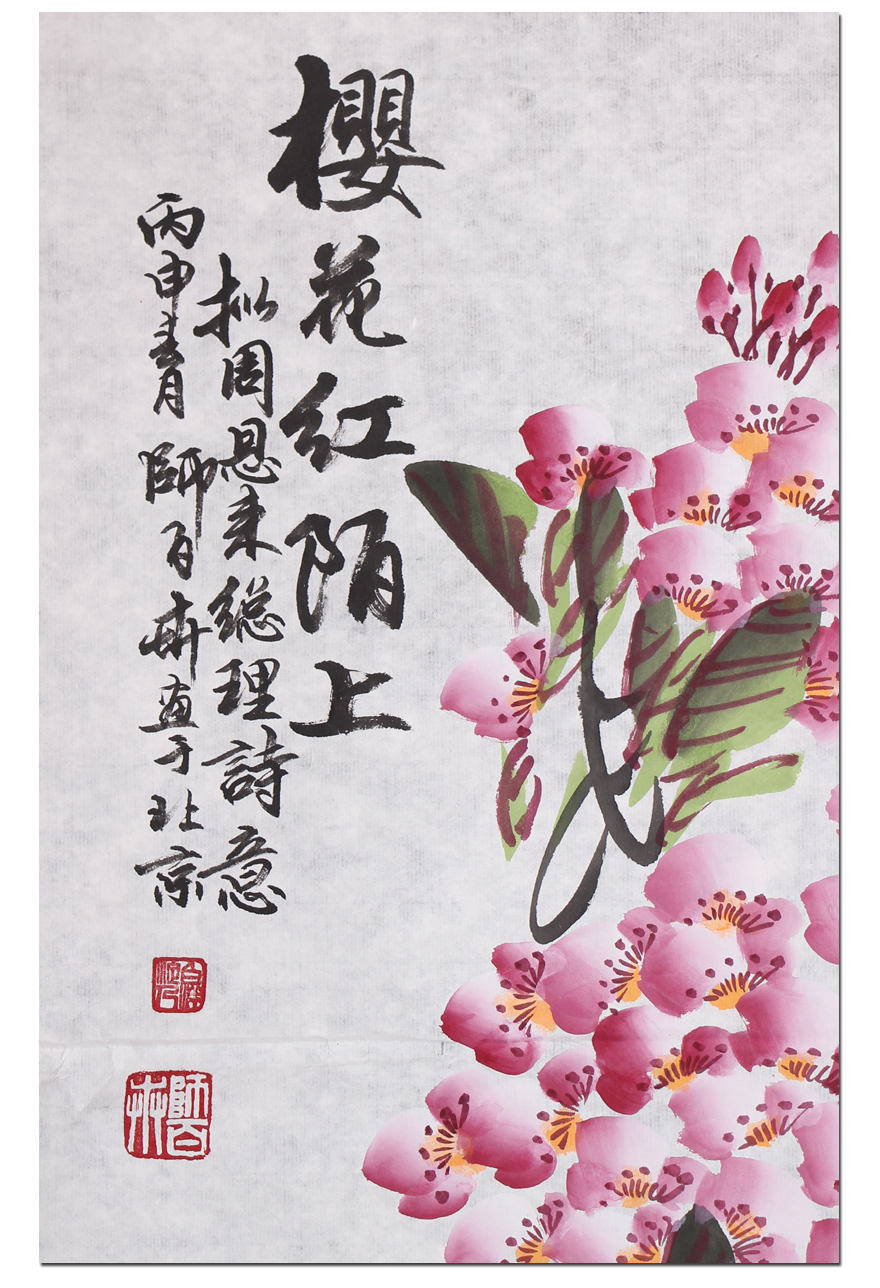 櫻花红陌上
拟周恩来總理詩意
丙申春月師百卉画于北京
師百卉